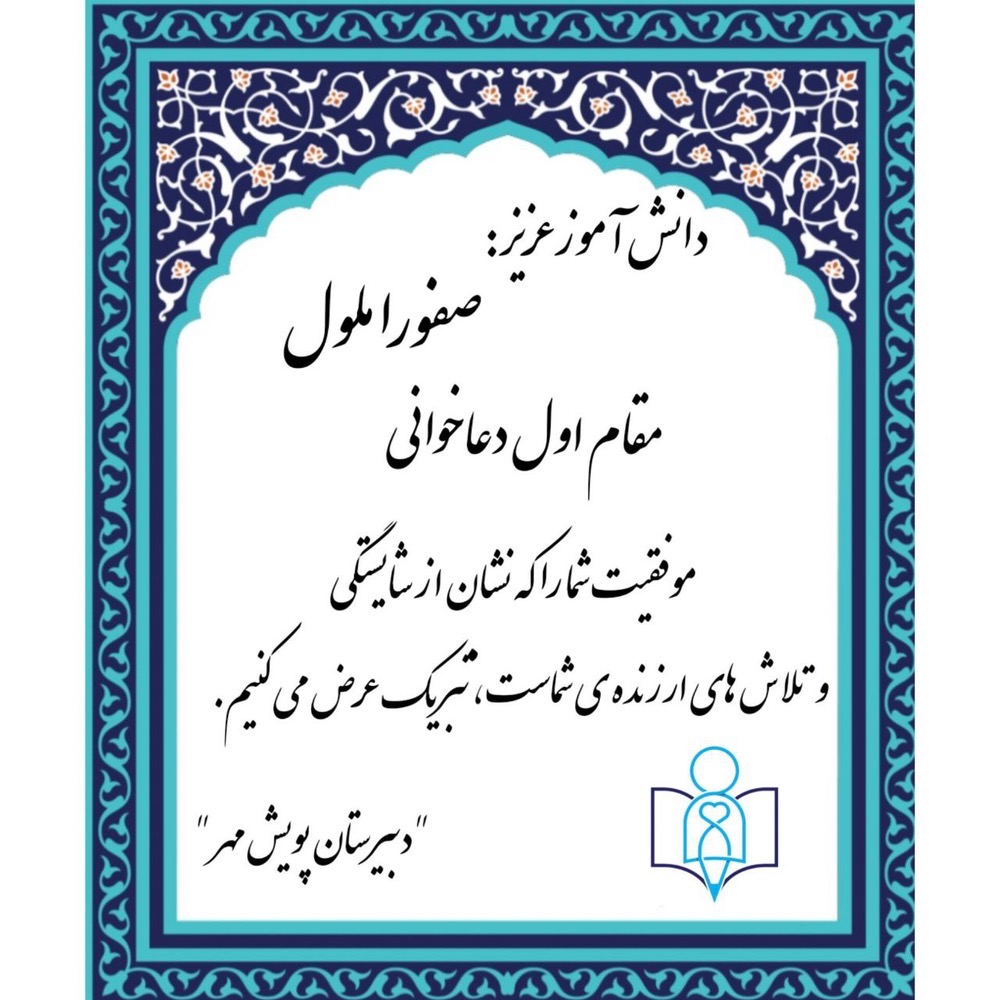 دانش آموز عزیز:
صفورا ملول
مقام اول دعاخوانی
موفقیت شما را که نشان از شایستگی
و تلاش های ارزنده ی شماست، تبریک عرض می کنیم.
"دبیرستان پویش مهر"